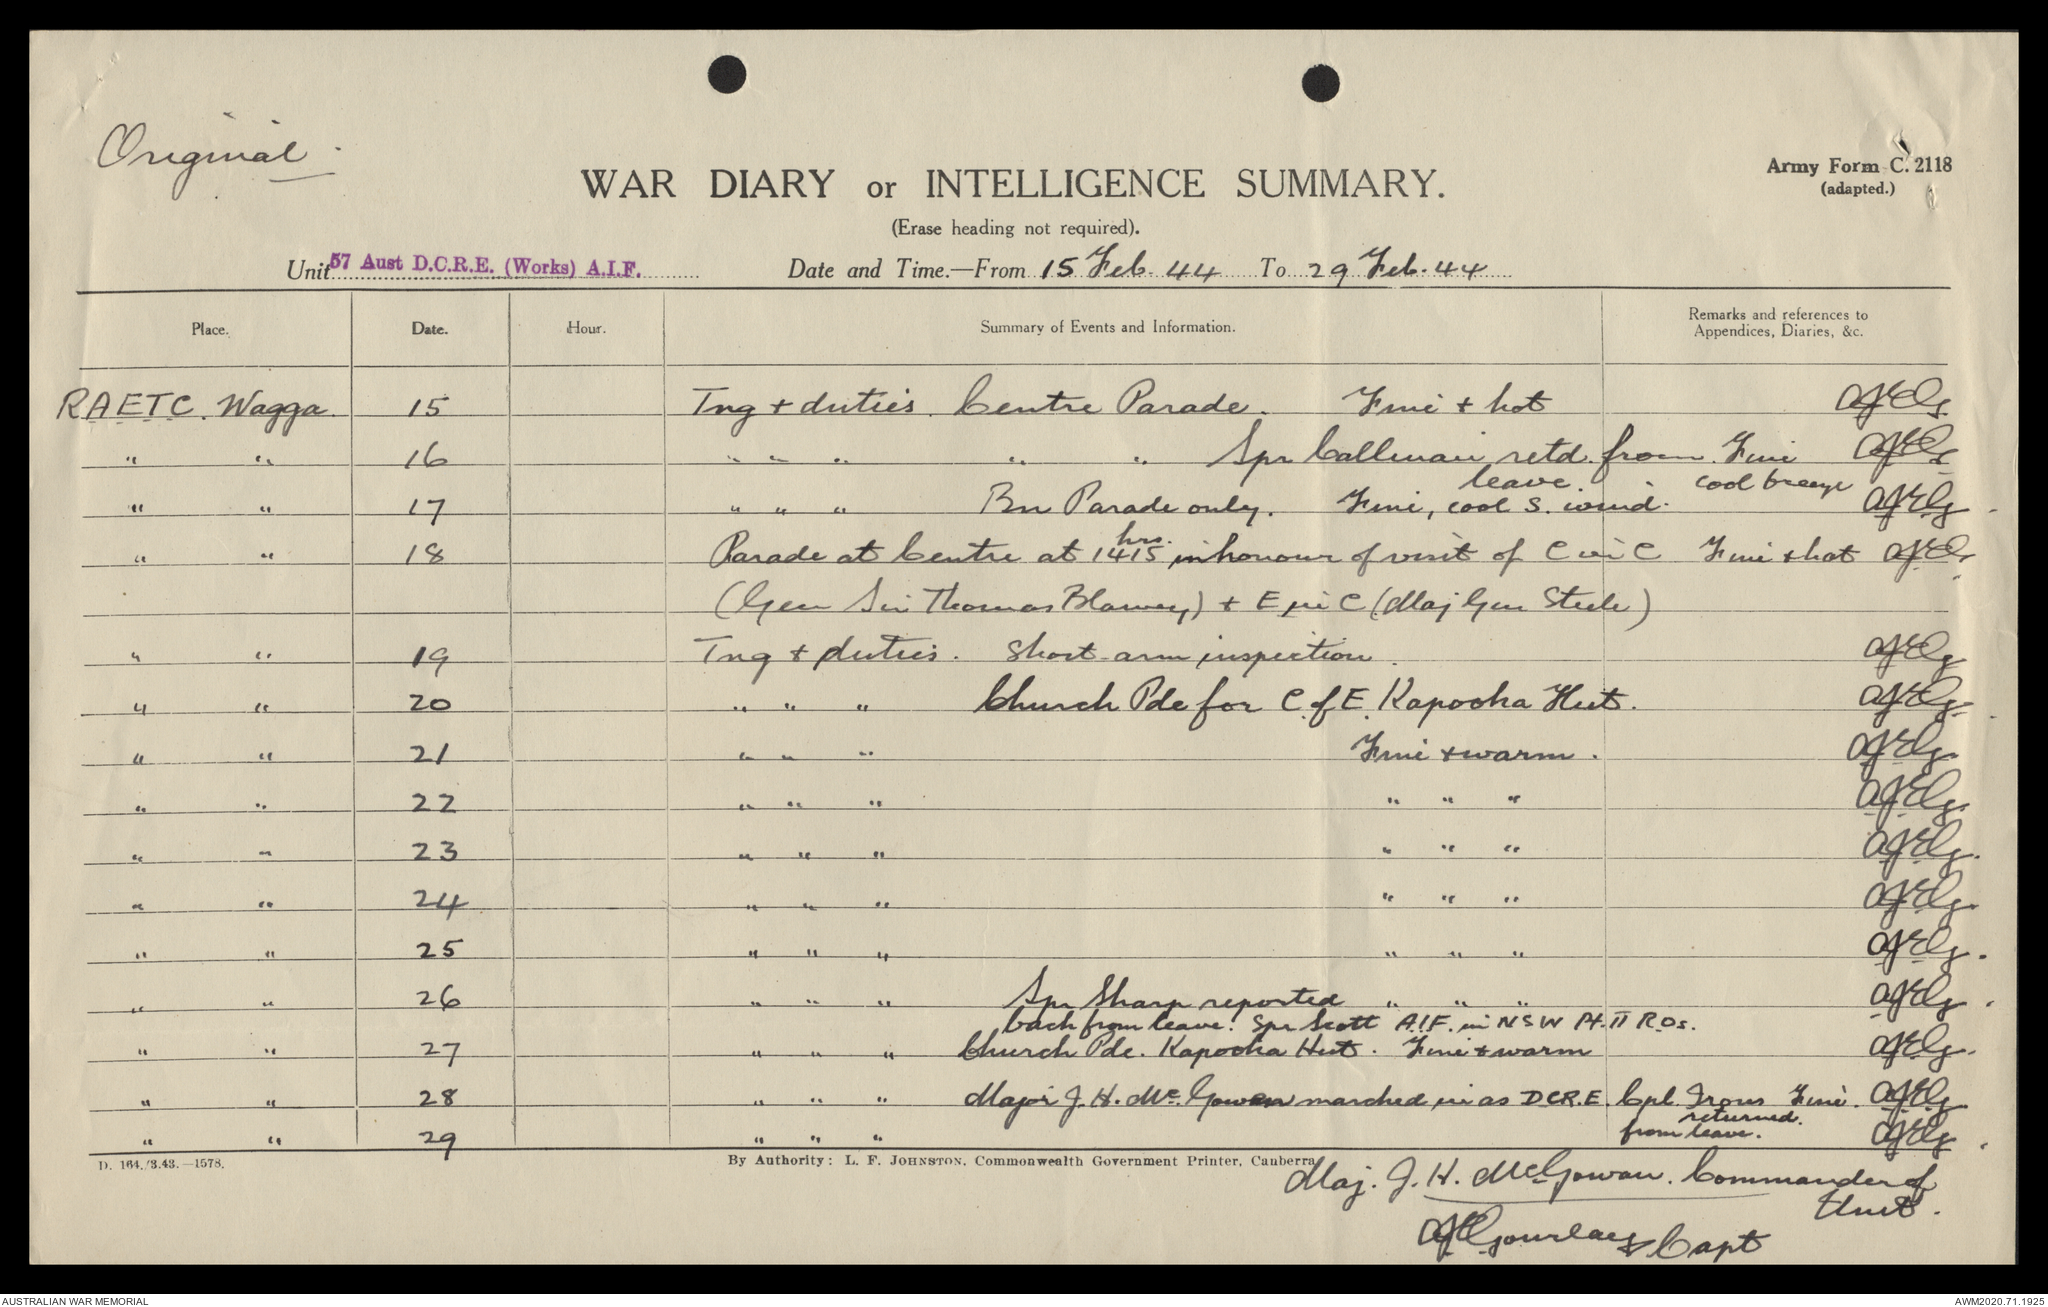 Original.
Army Form C. 2118
(adapted.)
WAR DIARY or INTELLIGENCE SUMMARY.
(Erase heading not required).
Unit 57 Aust D.C.R.E. (Works) A.I.F. Date and Time.—From 15 Feb. 44 To 29 Feb. 44
Place. Date. Hour. Summary of Events and Information. Remarks and references to
Appendices, Diaries, &c.
RAETC Wagga 15 Tng + duties. Centre Parade. Fine + hot AJEG
" " 16 " " " " " Spr retd. from Fine AJEG
leave. cool breeze
" " 17 " " " Bn Parade only. Fine, cool S. wind. AJEG
" " 18 Parade at Centre at 1415 hrs. in honour of visit of C in C Fine + hot AJEG
(Gen Sir Thomas Blamey) + E in C (Maj Gen Steele)
" " 19 Tng + duties. Short-arm inspection. AJEG
" " 20 " " " Church Pde for C. of E. Kapooka Hut. AJEG
" " 21 " " " Fine + warm. AJEG
" " 22 " " " " " " AJEG
" " 23 " " " " " " AJEG
" " 24 " " " " " " AJEG
" " 25 " " " " " " AJEG
" " 26 " " " Spr Sharp reported " " " AJEG
back from leave. Spr Scott A.I.F. in NSW Pt. II R.Os.
" " 27 " " " Church Pde. Kapooka Hut. Fine + warm AJEG
" " 28 " " " Major J. H. McGowan marched in as DCR.E. Cpl Fine. AJEG
returned
" " 29 " " " from leave. AJEG
D. 164./3.43.—1578. By Authority: L. F. JOHNSTON, Commonwealth Government Printer, Canberra
Maj. J. H. McGowan. Commander of
Unit.
AJEGourlay Capt
AUSTRALIAN WAR MEMORIAL AWM2020.71.1925